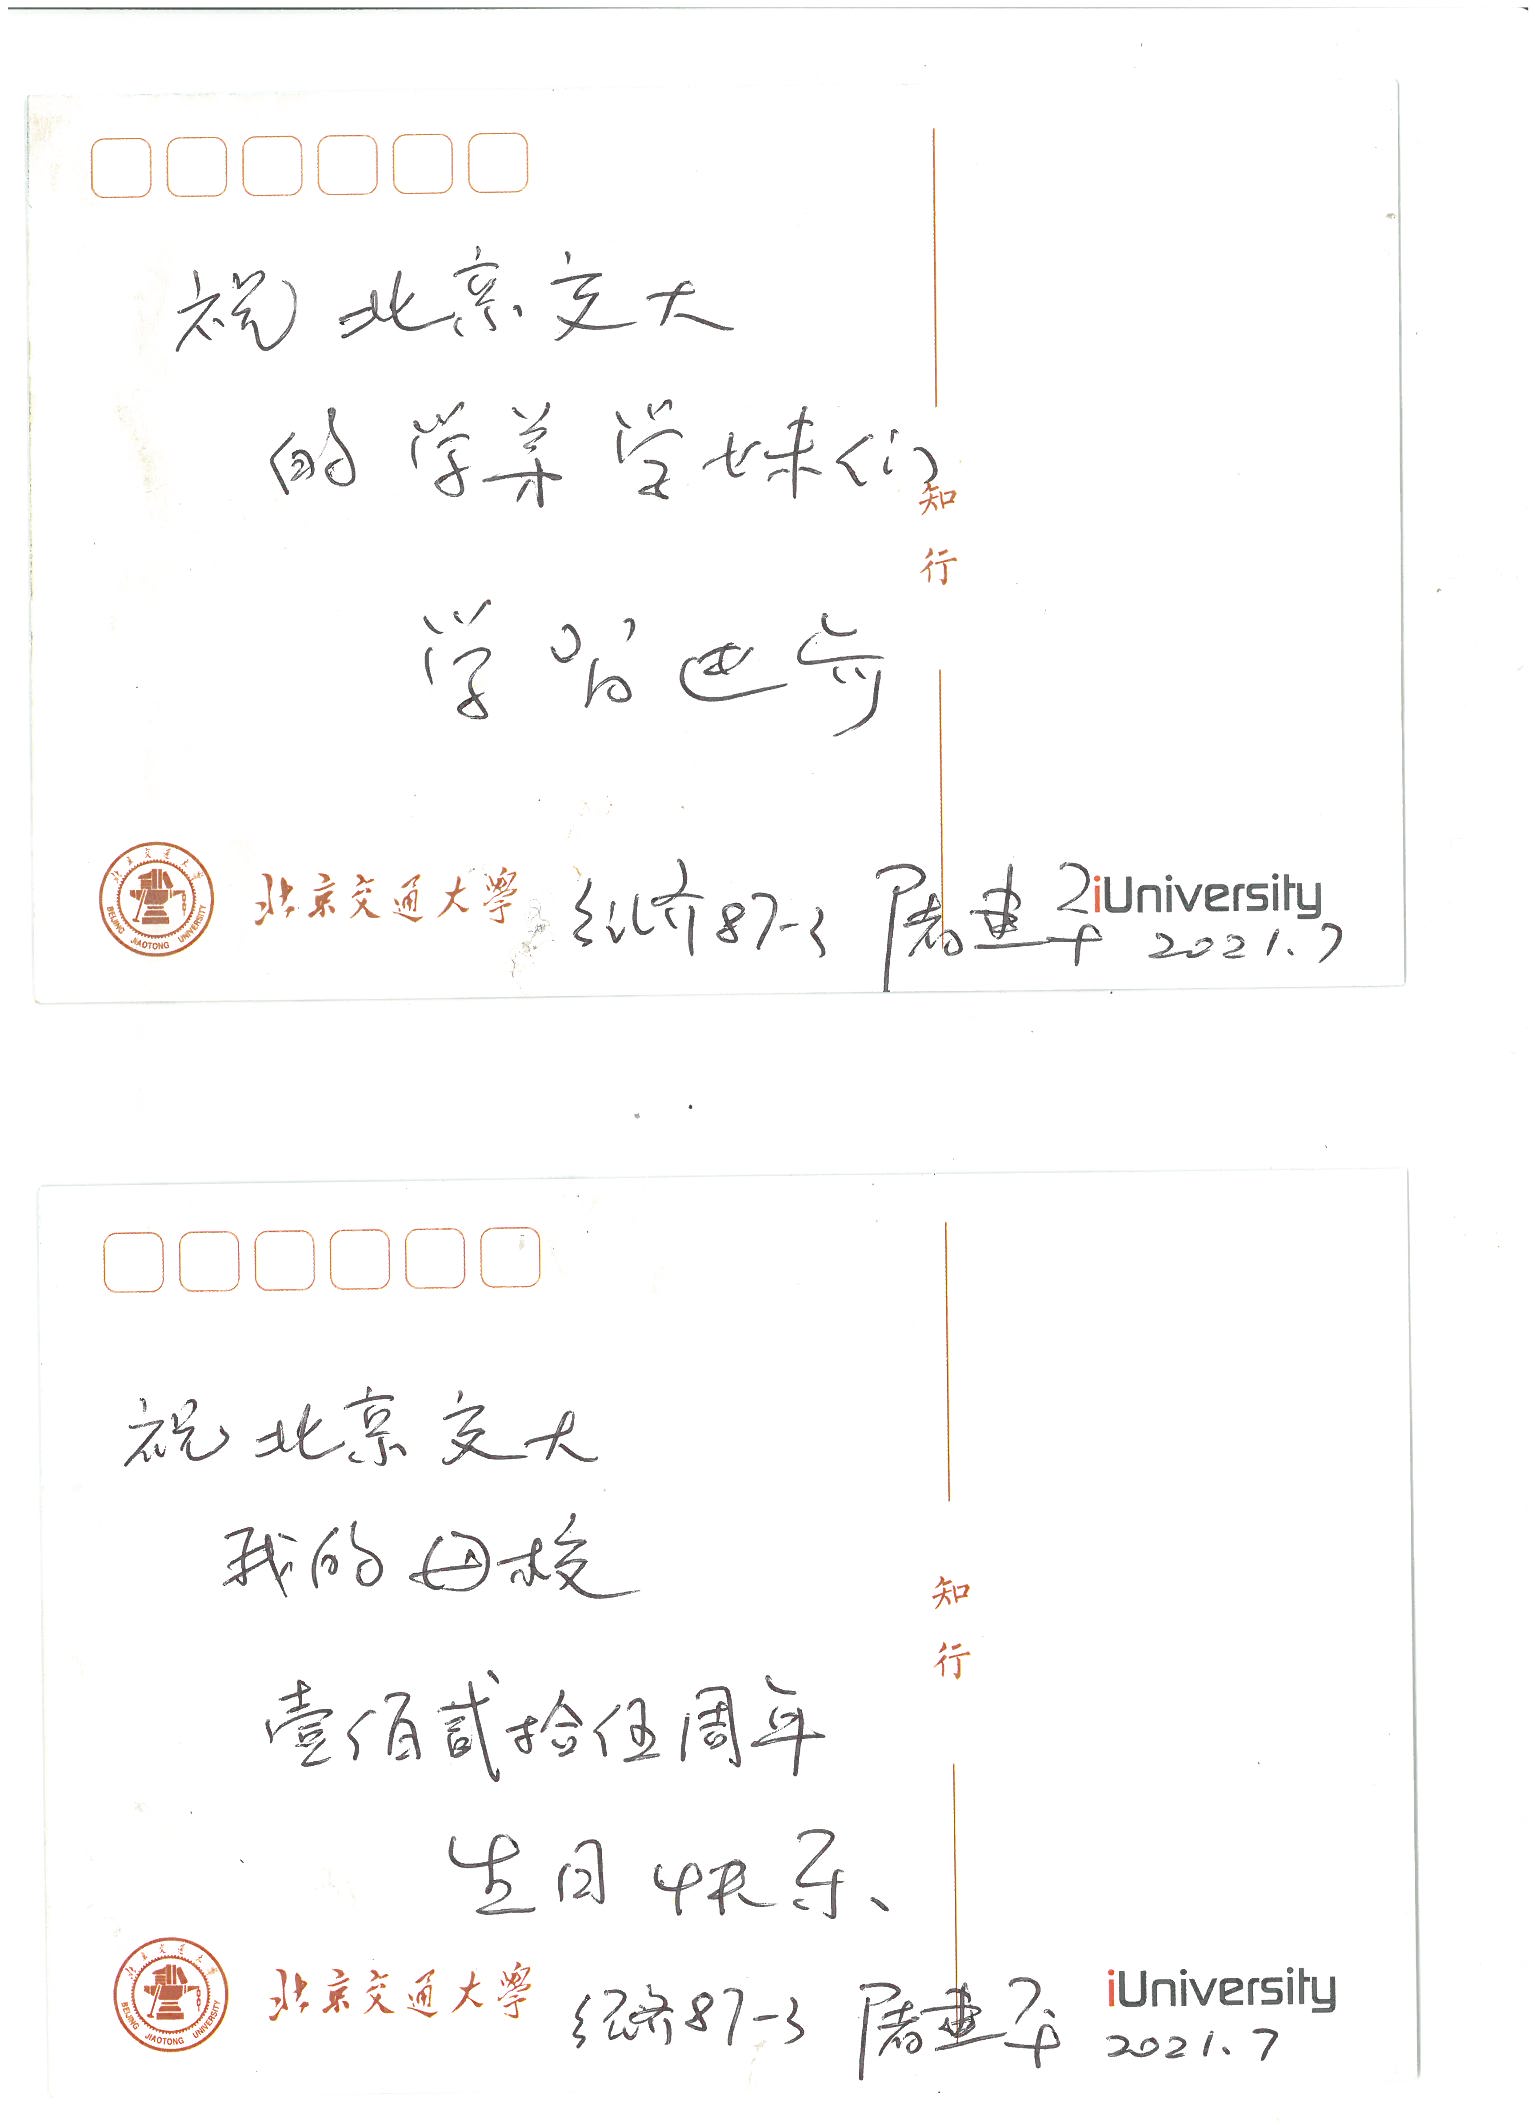 祝北京交大
的学弟学妹们
知
行
学习进步
北京交通大學 BEIJING JIAOTONG UNIVERSITY
北京交通大學
经济87-3 屠建平
iUniversity
2021.7
祝北京交大
我的母校
知
行
壹佰贰拾伍周年
生日快乐、
北京交通大學 BEIJING JIAOTONG UNIVERSITY
北京交通大學
经济87-3 屠建平
iUniversity
2021.7